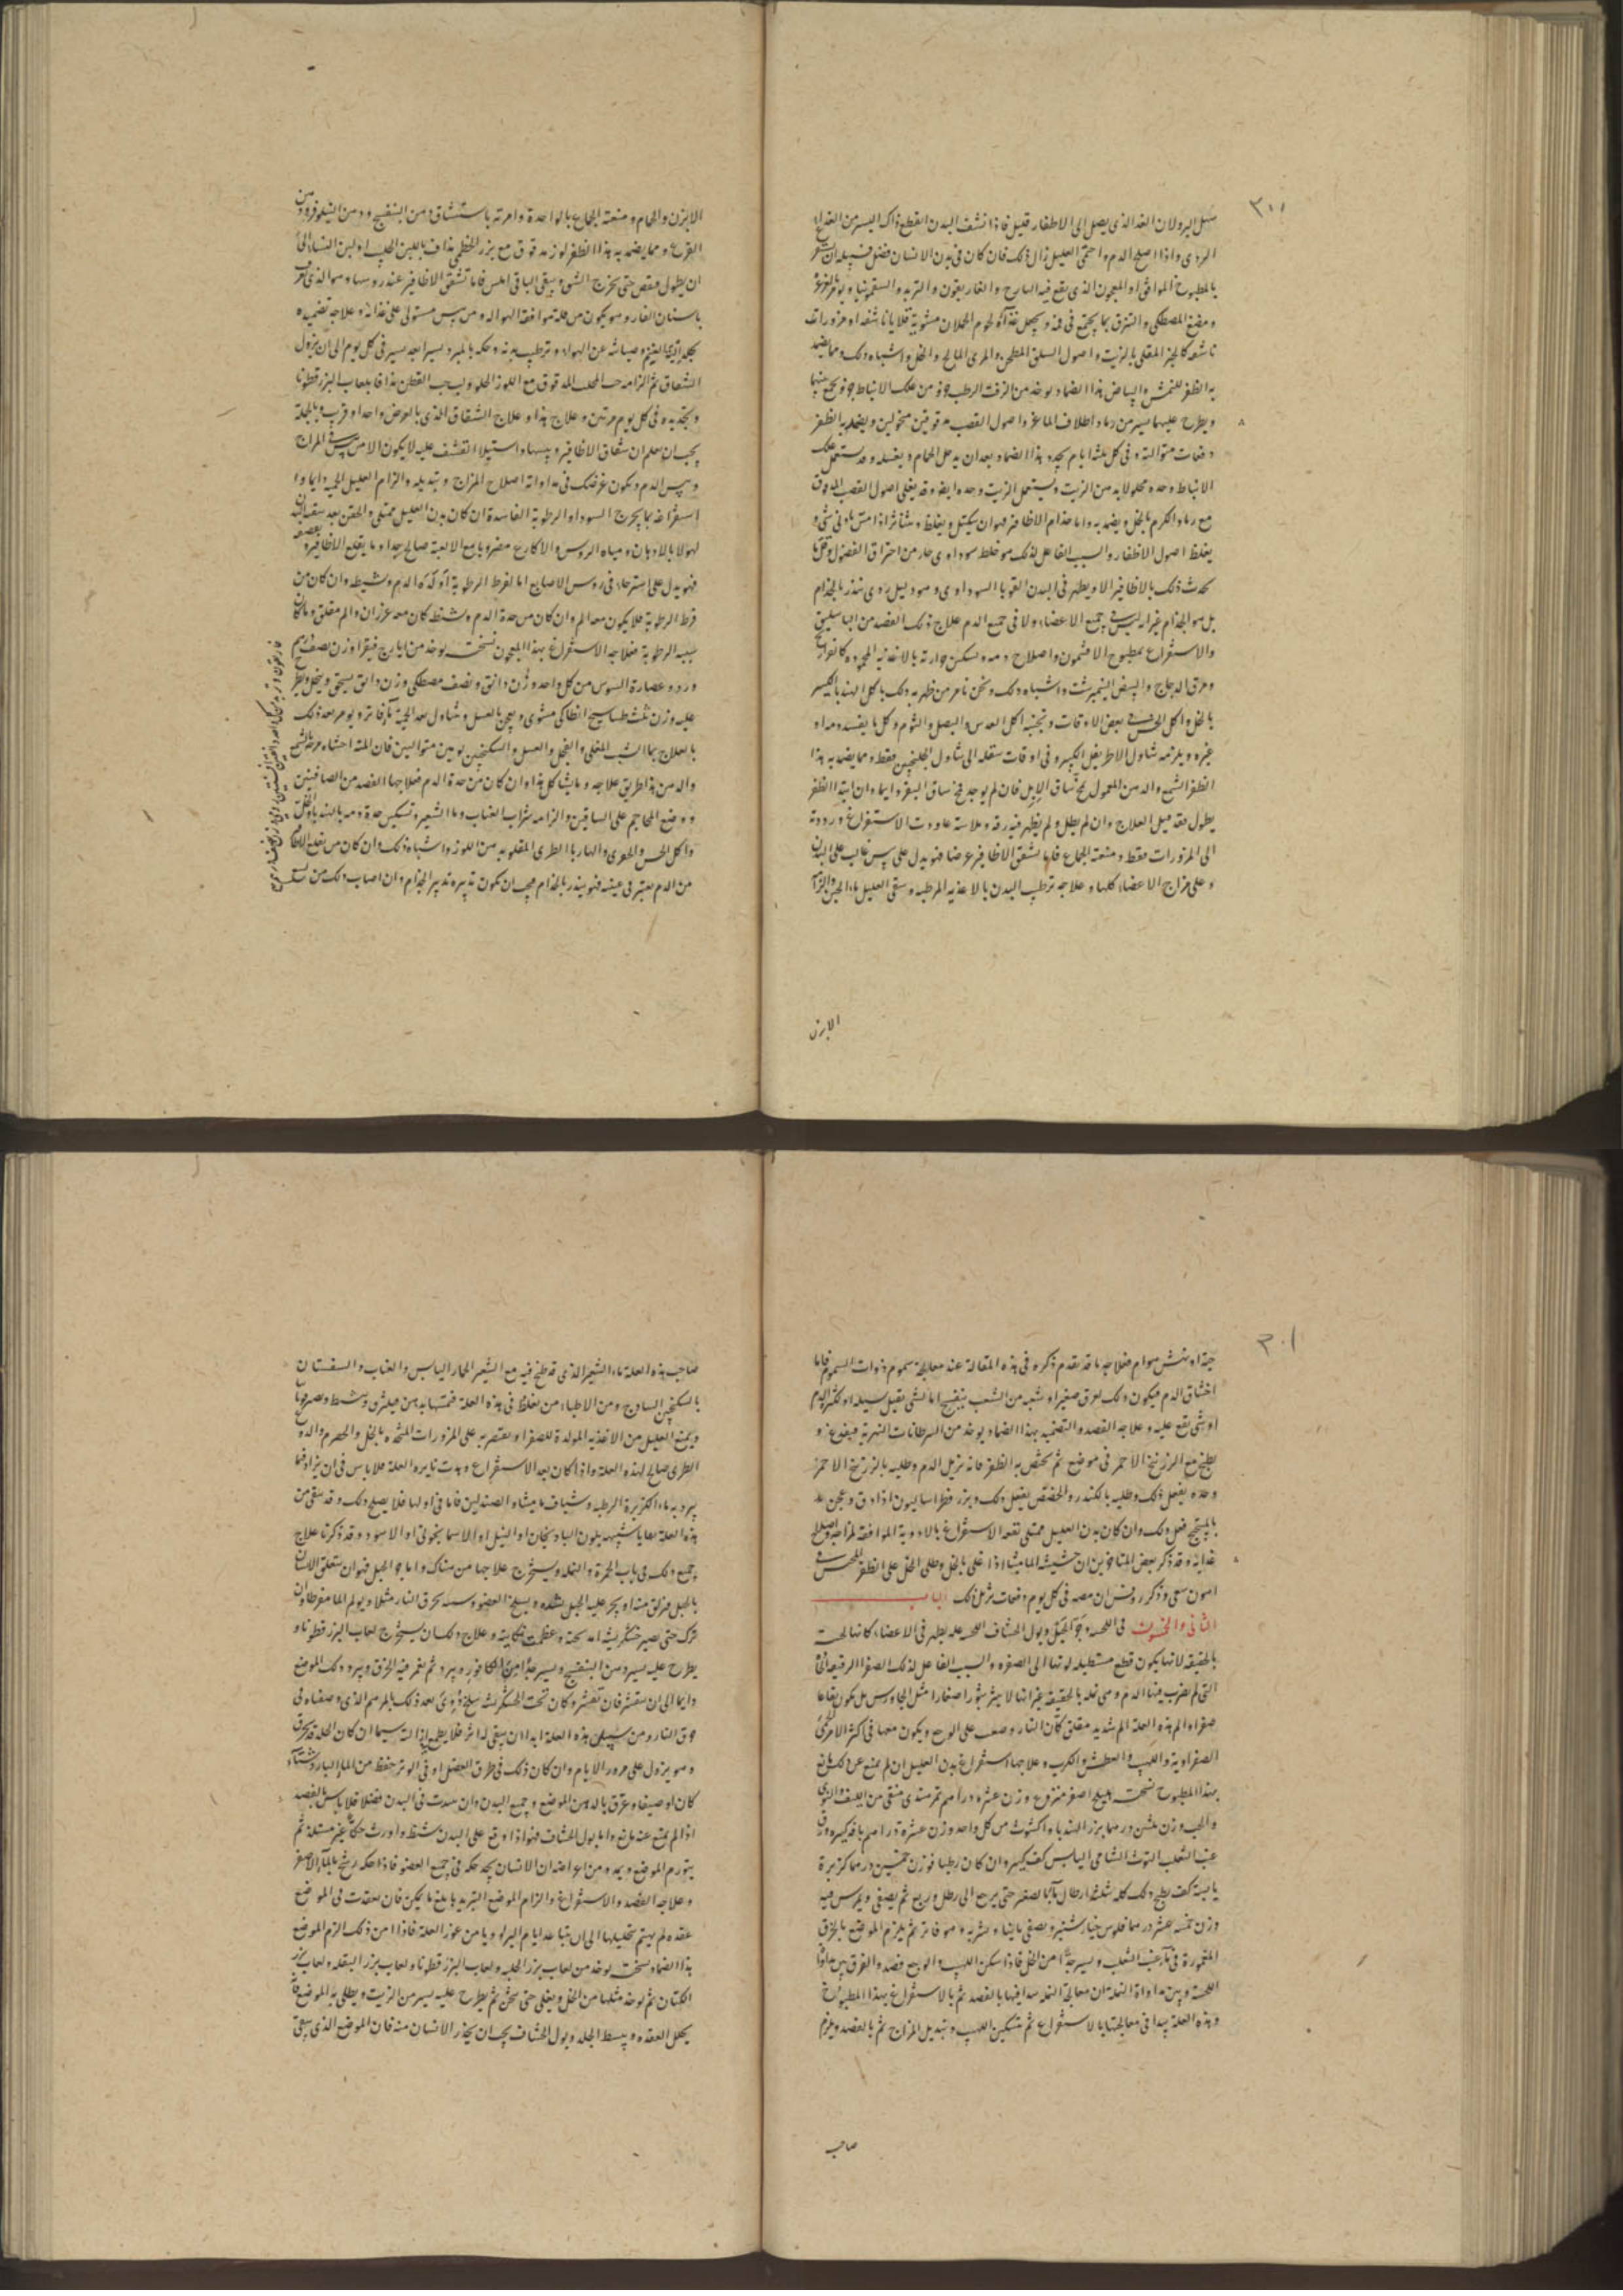 ٣٠٠
البرو لان الغذا الذى يصل الى الاظفار قليل فاذا نشف البدن انقطع ذاك اليسير من الغذا
الردى واذا اصلح الدم واحتمى العليل زال ذلك فان كان فى بدن الانسان فضل
بالمطبوخ الموافق او المعجون الذى يقع فيه ايارج والغاريقون والتربد والسقمونيا ويؤمر
ومضغ المصطكى والتبزق بما يجتمع فى فمه ويجعل غذاؤه لحوم الحملان مشوية قلايا ناشفه او مزورات
ناشفه كالجزر المقلى بالزيت واصول السلق المطجن والمرى المالح والخل واشباه ذلك ومما يضمد
به الظفر للنمش والبياض هذا الضماد يوخذ من الزفت الرطب جزو من علك الانباط جزو يجمع بينهما
ويطرح عليهما يسير من رماد اظلاف الماعز واصول القصب مدقوقين منخولين ويضمد به الظفر
دفعات متوالية وفى كل ثلثة ايام يجدد هذا الضماد بعد ان يدخل الحمام ويغسله وقد يستعمل علك
الانباط وحده محلولا بدهن الزيت ويستعمل الزيت وحده ايضا وقد يغلى اصول القصب المدقوق
مع رماد الكرم بالخل ويضمد به واما جذام الاظافير فهو ان يتكتل ويغلظ ويتناثر اذا مسته ادنى شى و
يغلظ اصول الاظفار والسبب الفاعل لذلك هو خلط سوداوى حار من احتراق الفضول وقل ما
يحدث ذلك بالاظافير الا ويظهر فى البدن القوبا السوداوى وهو دليل ردى ينذر بالجذام
بل هو الجذام غير انه ليس فى جميع الاعضاء ولا فى جميع الدم علاج ذلك الفصد من الباسليق
والاستفراغ بمطبوخ الافتيمون واصلاح دمه وتسكين حرارته بالاغذية المحموده كالفراريج
ومرق الدجاج والبيض النيمبرشت واشباه ذلك ونحن نامر من ظهر به ذلك باكل الهندبا الكبير
بالخل واكل الخس فى بعض الاوقات وتجنبه اكل العدس والبصل والثوم وكل ما يفسد دمه او
غيره ويلزمه تناول الاطريفل الكبير وفى اوقات ننقله الى تناول الجلنجبين فقط ومما يضمد به هذا
الظفر الشمع والدهن المعمول بمخ ساق الايل فان لم يوجد فمخ ساق البقر وايما وان ابتدا الظفر
يطول فقد قبل العلاج وان لم يطل ولم يظهر فيه رقة وملاسة عاودت الاستفراغ ورددته
الى المزورات فقط ومنعته الجماع فاما تشقق الاظافير عرضا فهو يدل على يبس غالب على البدن
وعلى مزاج الاعضاء كلها وعلاجه ترطيب البدن بالاغذيه المرطبه وسقى العليل ماء الجبن والزامه
الابزن
الابزن والحمام ومنعته الجماع بالواحدة وامرته باستنشاق دهن البنفسج ودهن النيلوفر ودهن
القرع ومما يضمد به هذا الظفر لوز مدقوق مع بزر الخطمى مداف باللبن الحليب او لبن النساء الى
ان يطول فيقص حتى يخرج الشق ويبقى الباقى املس فاما تشقق الاظافير عند روسها وهو الذى يعرف
باسنان الفار وهو يكون من قلة موافقة الهوا له ومن يبس مستولى على غذائه وعلاجه تضميده
بجلد الية الغنم وصيانته عن الهواء وترطيب بدنه وحكه بالمبرد يسيرا بعد يسير فى كل يوم الى ان يزول
الشقاق ثم الزامه حب المحلب المدقوق مع اللوز الحلو ولب حب القطن مدافا بلعاب البزرقطونا
وتجديده فى كل يوم مرتين وعلاج هذا وعلاج الشقاق الذى بالعرض واحد او قريب وبالجملة
يجب ان يعلم ان شقاق الاظافير ويبسها واستيلاء التقشف عليه لا يكون الا من يبس فى المزاج
ويبس الدم ويكون غرضك فى مداواته اصلاح المزاج وتبديله والزام العليل الحمية دايما و
استفراغه بما يخرج السوداء والرطوبة الفاسدة ان كان بدن العليل ممتلى والحقن بعد سقى اللبن
لهولا بالادهان ومياه الروس والاكارع مضروبا مع الالعبة صالح جدا وما يقلع الاظافير
فهو يدل على استرخاء فى روس الاصابع اما لفرط الرطوبة او لحدة الدم وتشيطه وان كان من
فرط الرطوبة فلا يكون معه الم وان كان من حدة الدم وتشيطه كان معه ضربان والم مقلق وما كان
سببه الرطوبة فعلاجه الاستفراغ بهذا المعجون نسخته يوخذ من ايارج فيقرا وزن نصف درهم
ورد وعصارة السوس من كل واحد وزن دانق ونصف مصطكى وزن دانق يسحق وينخل ويطرح
عليه وزن ثلث طساسيج انطاكى مشوى ويعجن بالعسل ويتناول بعد الحمية بماء فاتر ويؤمر بعد ذلك
بالعلاج بماء الشبت المغلى والفجل والعسل والسكنجبين يومين متواليين فان المته احشاؤه مرخه بالشمع
والدهن هذا طريق علاجه وما يشاكل هذا وان كان من حدة الدم فعلاجها الفصد من الصافنين
ووضع المحاجم على الساقين والزامه شراب العناب وماء الشعير وتسكين حدة دمه بالهندبا والخل
واكل الخس والجوز والهاربا الطرى المقلو بدهن اللوز واشباه ذلك وان كان من يقلع الاظفار
من الدم تغير فى عينه فهو ينذر بالجذام يجب ان يكون تدبيره تدبير الجذام وان اصاب ذلك من لسع
٣٠١
حية او نهش هوام فعلاجه ما قد تقدم ذكره فى هذه المقالة عند معالجة سموم ذوات السموم فاما
اختناق الدم فيكون ذلك لعرق صغير او شعبه من الشعب ينفتح اما لشى ثقيل يسيله او لكثرة الدم
او شى يقع عليه وعلاجه الفصد والتضميد بهذا الضماد يوخذ من السرطانات النهرية فيقوع و
يطبخ مع الزرنيخ الاحمر فى موضع ثم يختص به الظفر فانه يزيل الدم وطليه بالزرنيخ الاحمر
وحده يفعل ذلك وطليه بالكندر والحضض يفعل ذلك وبزر فطراساليون اذا دق وعجن
بالميبختج فعل ذلك وان كان بدن العليل ممتلى تفقد الاستفراغ بالادوية الموافقة لمزاجه واصلاح
غذايه وقد ذكر بعض المتاخرين ان حشيشة الماميثا اذا غلى بالخل وطلى الخل على الظفر
وذكر روفس ان مصه فى كل يوم دفعات يزيل ذلك الباب
الثانى والخمسون فى
بالحقيقه لانها يكون قطع مستطيله لونها الى الصفره والسبب الفاعل لذلك الصفرا الرقيقه
التى لم يضرب فيها الدم وهى نملة بالحقيقة غير انها لا يبثر بثورا صغارا مثل الجاورس بل يكون بقاعا
صفراء الم هذه العلة الم شديد مقلق كان النار وضعت على الوجع ويكون معها فى اكثر الامر حمى
الصفراوية واللهيب والعطش والكرب وعلاجها استفراغ بدن العليل ان لم يمنع عن ذلك مانع
بهذا المطبوخ نسخته هليلج اصفر منزوع وزن عشره دراهم تمر هندى منقى من الليف والنوى
والحب وزن ثلثين درهما بزر الهندباء واكشوث من كل واحد وزن عشرة دراهم باقه كبيره ورق
عنب الثعلب التوت الشامى اليابس كف كبير وان كان رطبا فوزن خمسين درهما كزبرة
يابسة كف يطبخ ذلك كله بثلثة ارطال ماء بنار لينة حتى يرجع الى رطل وربع ثم يصفى ويمرس فيه
وزن خمسة عشر درهما فلوس خيارشنبر ويصفى ثانيا ويشربه وهو فاتر ثم يلزم الموضع بالخرق
المغمورة فى ماء عنب الثعلب ويسير جدا من الخل فاذا سكن اللهيب والوجع فصد والفرق بين مداواة
وبين مداواة النملة ان معالجة النملة يبدا فيها بالفصد ثم بالاستفراغ بهذا المطبوخ
وهذه العلة يبدا فى معالجتها بالاستفراغ ثم تسكين اللهيب وتبديل المزاج ثم بالفصد ويلزم
صاحب
صاحب هذه العلة ماء الشعير الذى قد طبخ فيه مع الشعير الخيار اليابس والعناب والسفستان
بالسكنجبين الساذج ومن الاطباء من يغلط فى هذه العلة
ويمنع العليل من الاغذيه المولدة للصفراء ويقتصر به على المزورات المتخذه بالخل والحصرم والدوغ
الطرى صالح لهذه العلة واذا كان بعد الاستفراغ وهدت نايره العلة فلا باس فى ان يزاد فيما
يبرد به ماء الكزبرة الرطبه وشياف ماميثا والصندلين فاما فى اولها فلا يصلح ذلك وقد يبقى من
هذه العلة بقايا شبيهه بلون الباذنجان او النيل او الاسمانجونى او الاسود وقد ذكرنا علاج
جميع ذلك فى باب الحمرة والنملة ويستخرج علاجها من هناك واما
بالحبل فيزلق منه او يجر عليه الحبل بشده ويسلخ العضو ويسه كحرق النار مثلا ويولم الما مفرطا وان
ترك حتى يصير خشكريشة وعظمت نكايته وعلاج ذلك ان يستخرج لعاب البزرقطونا و
يطرح عليه يسير دهن البنفسج ويسير جدا من الكافور ويبرد ثم يغمر فيه الخرق ويبرد ذلك الموضع
دايما الى ان يتقشر فان تقشر وكان تحت الخشكريشة سلخ دووى بعد ذلك بالمرهم الذى وصفناه فى
حرق النار ومن سبيل هذه العلة ابدا ان يبقى له اثر فلا يطمع ازالته سيما ان كان الجلد قد تحرق
وهو يزول على مرور الايام وان كان ذلك فى طرق العضل او فى الوتر حفظ من الماء البارد شتاء
كان او صيفا وعرق بالدهن الموضع وجميع البدن وان ميزت فى البدن فضلا فلا باس بالفصد
اذا لم يمنع عنه مانع واما بول الخشاف فهو اذا وقع على البدن شنط واورث حكة غير مستلذة ثم
يتورم الموضع ويحمر ومن اعراضه ان الانسان يجد حكه فى جميع العضو فاذا حكه رشح بالماء الاصفر
وعلاجه الفصد والاستفراغ والزام الموضع التبريد بابلغ ما يمكن فان تعقدت فى الموضع
عقده لم يهتم بتحليلها الى ان يتباعد ايام البرو ويامن عود العلة فاذا امن ذلك الزم الموضع
هذا الضماد نسخته يوخذ من لعاب بزر الحلبه ولعاب البزرقطونا ولعاب بزر البقله ولعاب بزر
الكتان ثم يوخذ مثلها من الخل ويغلى حتى يثخن ثم يطرح عليه يسير من الزيت ويطلى به الموضع فانه
يحلل العقده ويبسط الجلد وبول الخشاف يجب ان يحذر الانسان منه فان الموضع الذى يبقى